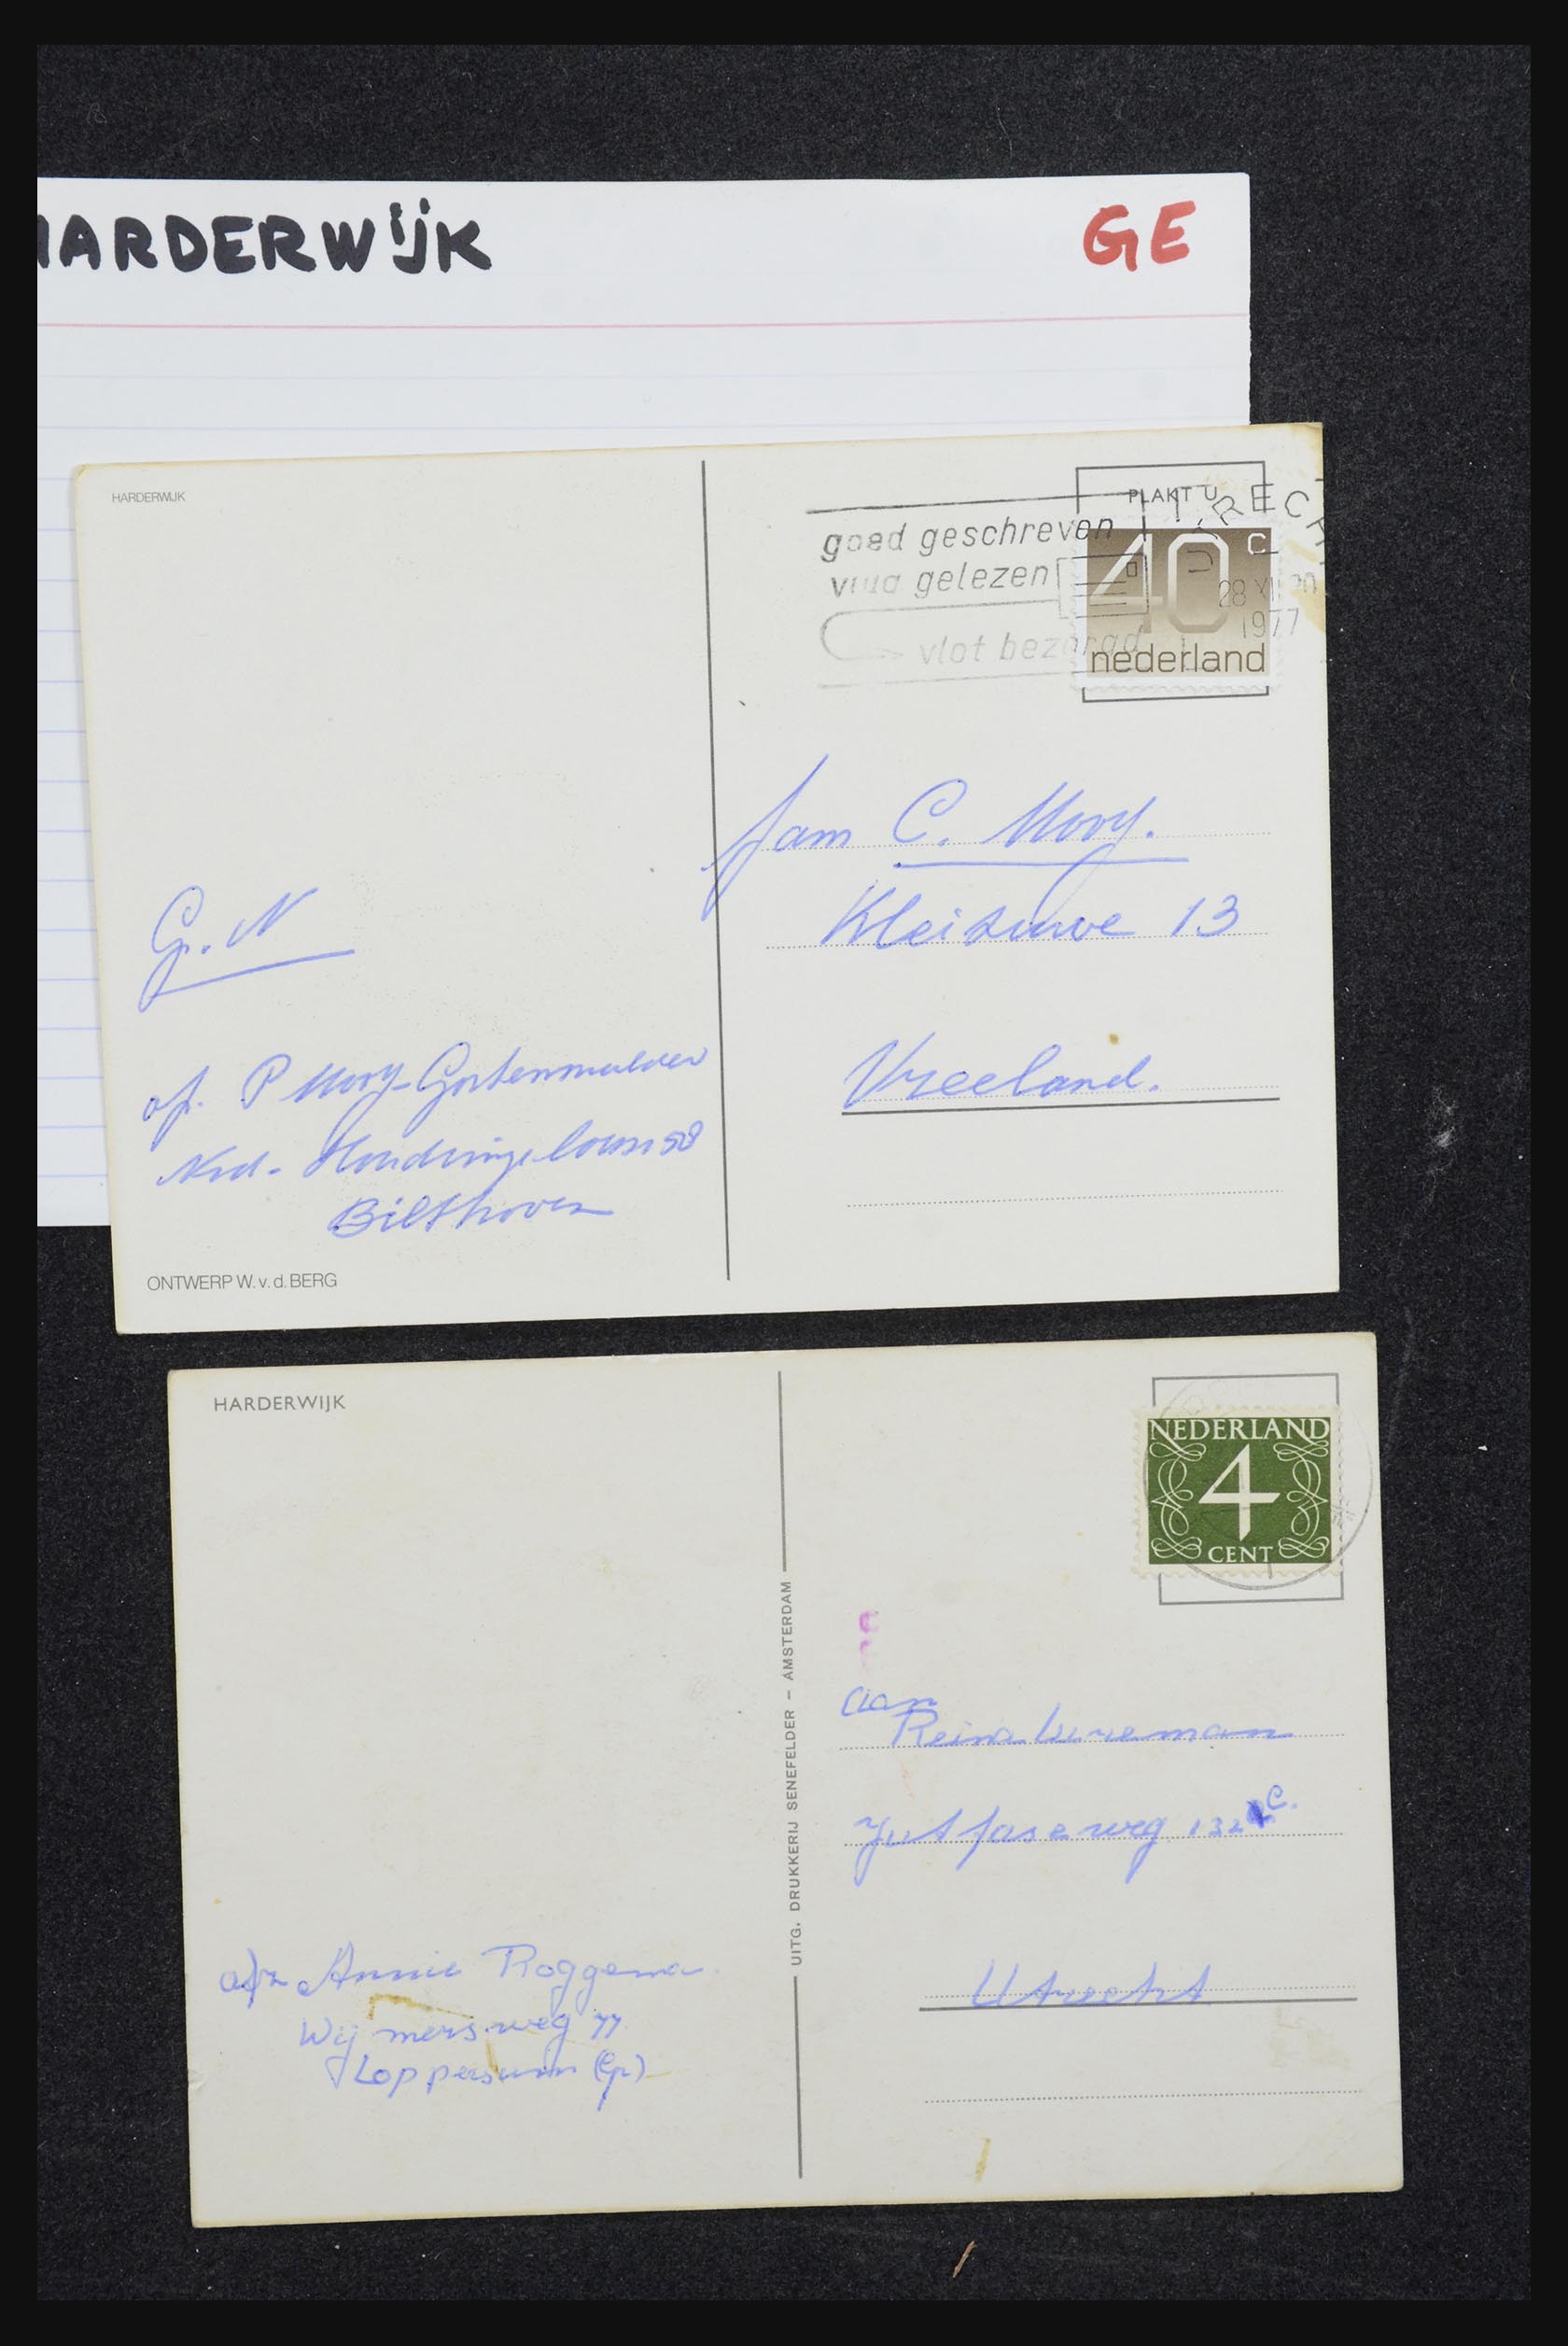 HARDERWIJK
GE
HARDERWIJK
PLAKT U
UTRECH
goed geschreven
vlug gelezen
vlot bezorgd
40 c
28 XI 20
1977
nederland
fam C. Mooy.
Kleizuwe 13
Vreeland.
Gr. N
af. P Mooy-Gortenmulder
Ned-
Bilthoven
ONTWERP W. v. d. BERG
HARDERWIJK
NEDERLAND
4
CENT
UITG. DRUKKERIJ SENEFELDER – AMSTERDAM
aan
Reina
Jutfaseweg 132 c.
Utrecht
afz Annie Roggema
Wijmersweg 77
Loppersum (Gr)